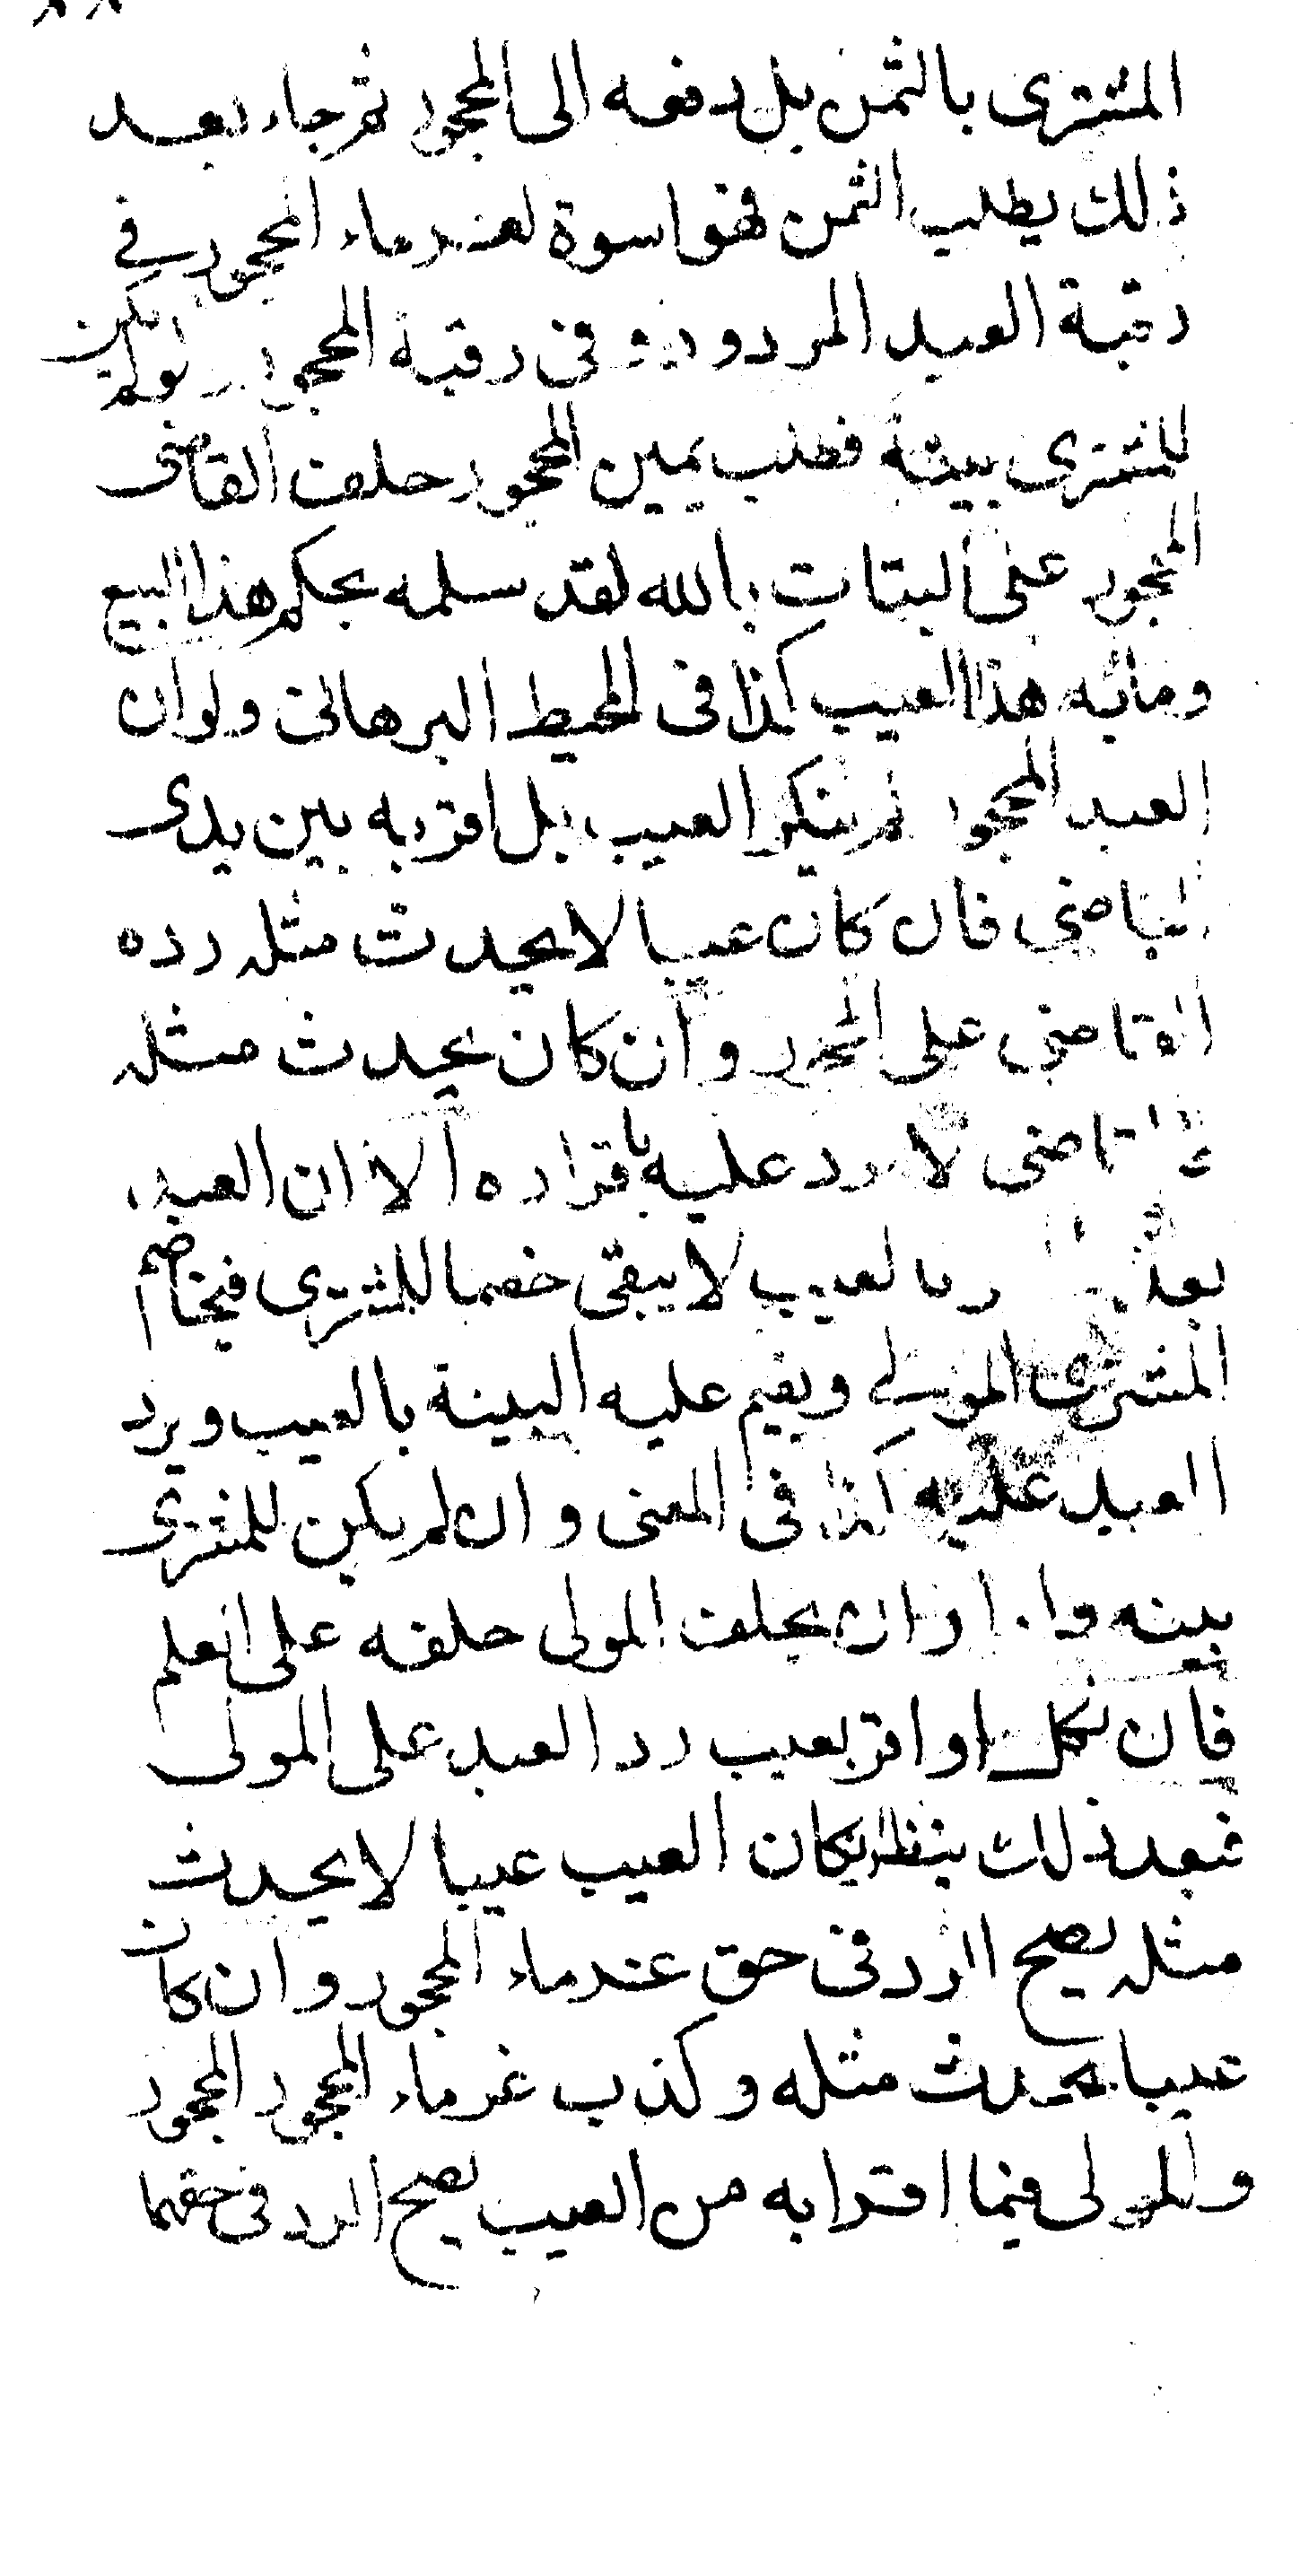 المشترى بالثمن بل دفعه الى المحجور ثم جاء بعد
ذلك يطلب الثمن فهو اسوة لغرماء المحجور في
رقبة العبد المردود وفى رقبة المحجور ولو لم يكن
للمشترى بينة فطلب يمين المحجور حلف القاضى
المحجور على البتات بالله لقد سلمه بحكم هذا البيع
ومابه هذا العيب كذا فى المحيط البرهانى ولو ان
العبد المحجور لم ينكر العيب بل اقر به بين يدى
القاضى فان كان عيبا لا يحدث مثله رده
القاضى على المحجور وان كان يحدث مثله
القاضى لا يرد عليه باقراره الا ان العبد
بعد بالعيب لا يبقى خصما للمشترى فيخاصم
المشترى المولى ويقيم عليه البينة بالعيب ويرد
العبد عليه كذا فى المغنى وان لم يكن للمشترى
بينه واراد ان يحلف المولى حلفه على العلم
فان نكل او اقر بعيب رد العبد على المولى
فبعد ذلك ينظر ان كان العيب عيبا لا يحدث
مثله يصح الرد فى حق غرماء المحجور وان كان
عيبا يحدث مثله وكذب غرماء المحجور المحجور
والمولى فيما اقرا به من العيب يصح الرد فى حقهما